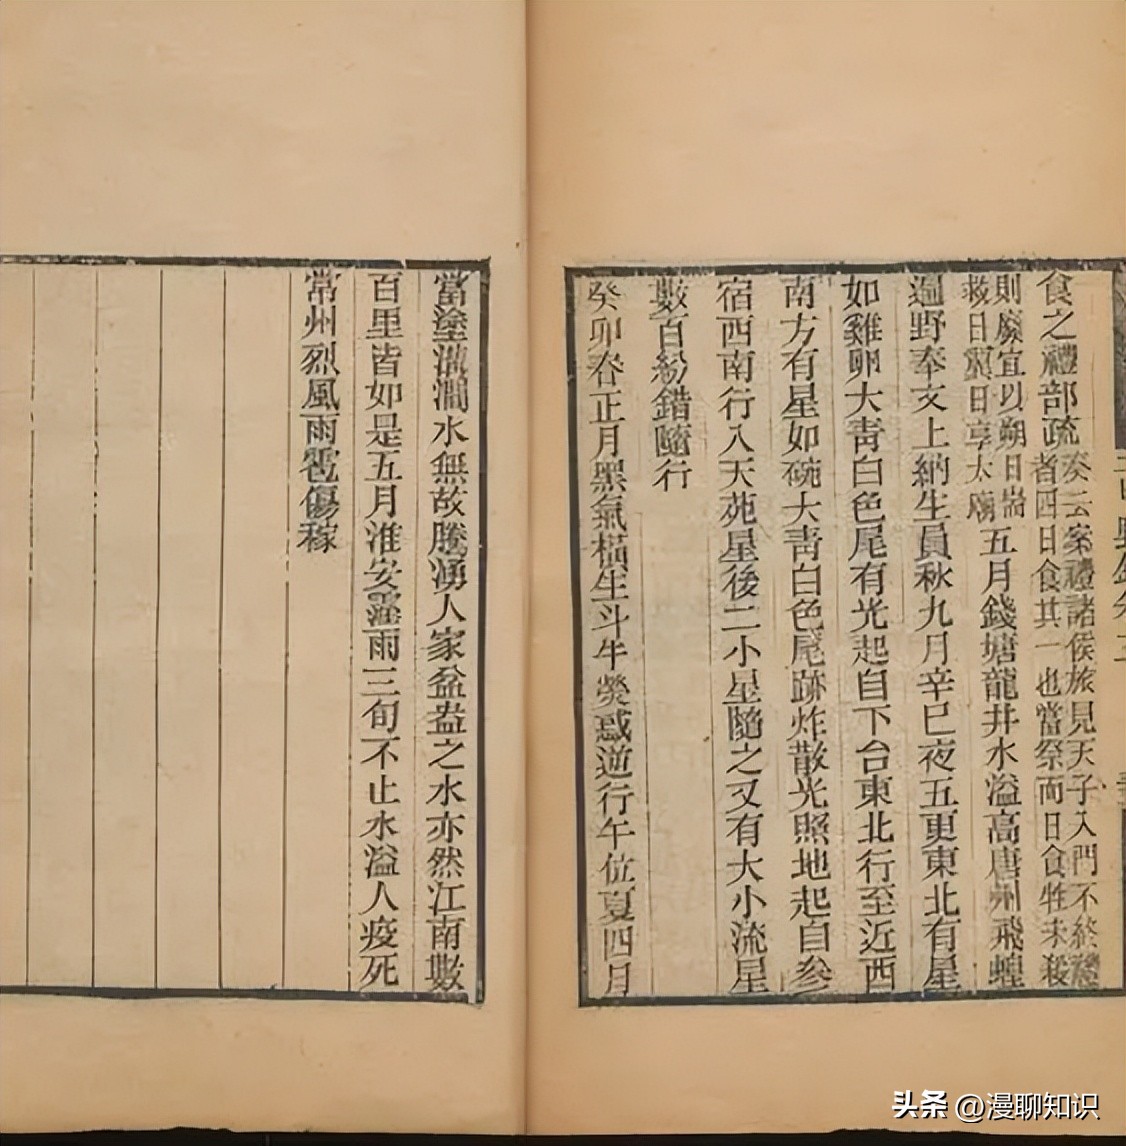 食之禮部疏
奏云案禮諸侯旅見天子入門不終禮
者四日食其一也當祭而日食牲未殺
則廢宜以朔日
救日翼日享太廟
五月錢塘龍井水溢高唐州飛蝗
遍野奉文上納生員秋九月辛巳夜五更東北有星
如雞卵大青白色尾有光起自下台東北行至近西
南方有星如碗大青白色尾跡炸散光照地起自參
宿西南行入天苑星後二小星隨之又有大小流星
數百紛錯隨行
癸卯春正月黑氣樞生斗牛熒惑逆行午位夏四月
當塗溝澗水無故騰湧人家盆盎之水亦然江南數
百里皆如是五月淮安霪雨三旬不止水溢人疫死
常州烈風雨雹傷稼
头条 @漫聊知识